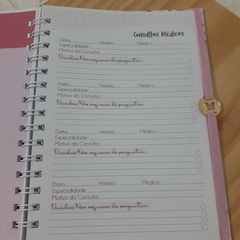 Consultas Médicas
Data: Horário: Médico:
Especialidade:
Motivo da Consulta:
Dúvidas/Não esquecer de perguntar:
Data: Horário: Médico:
Especialidade:
Motivo da Consulta:
Dúvidas/Não esquecer de perguntar:
Data: Horário: Médico:
Especialidade:
Motivo da Consulta:
Dúvidas/Não esquecer de perguntar:
Data: Horário: Médico:
Especialidade:
Motivo da Consulta:
Dúvidas/Não esquecer de perguntar: